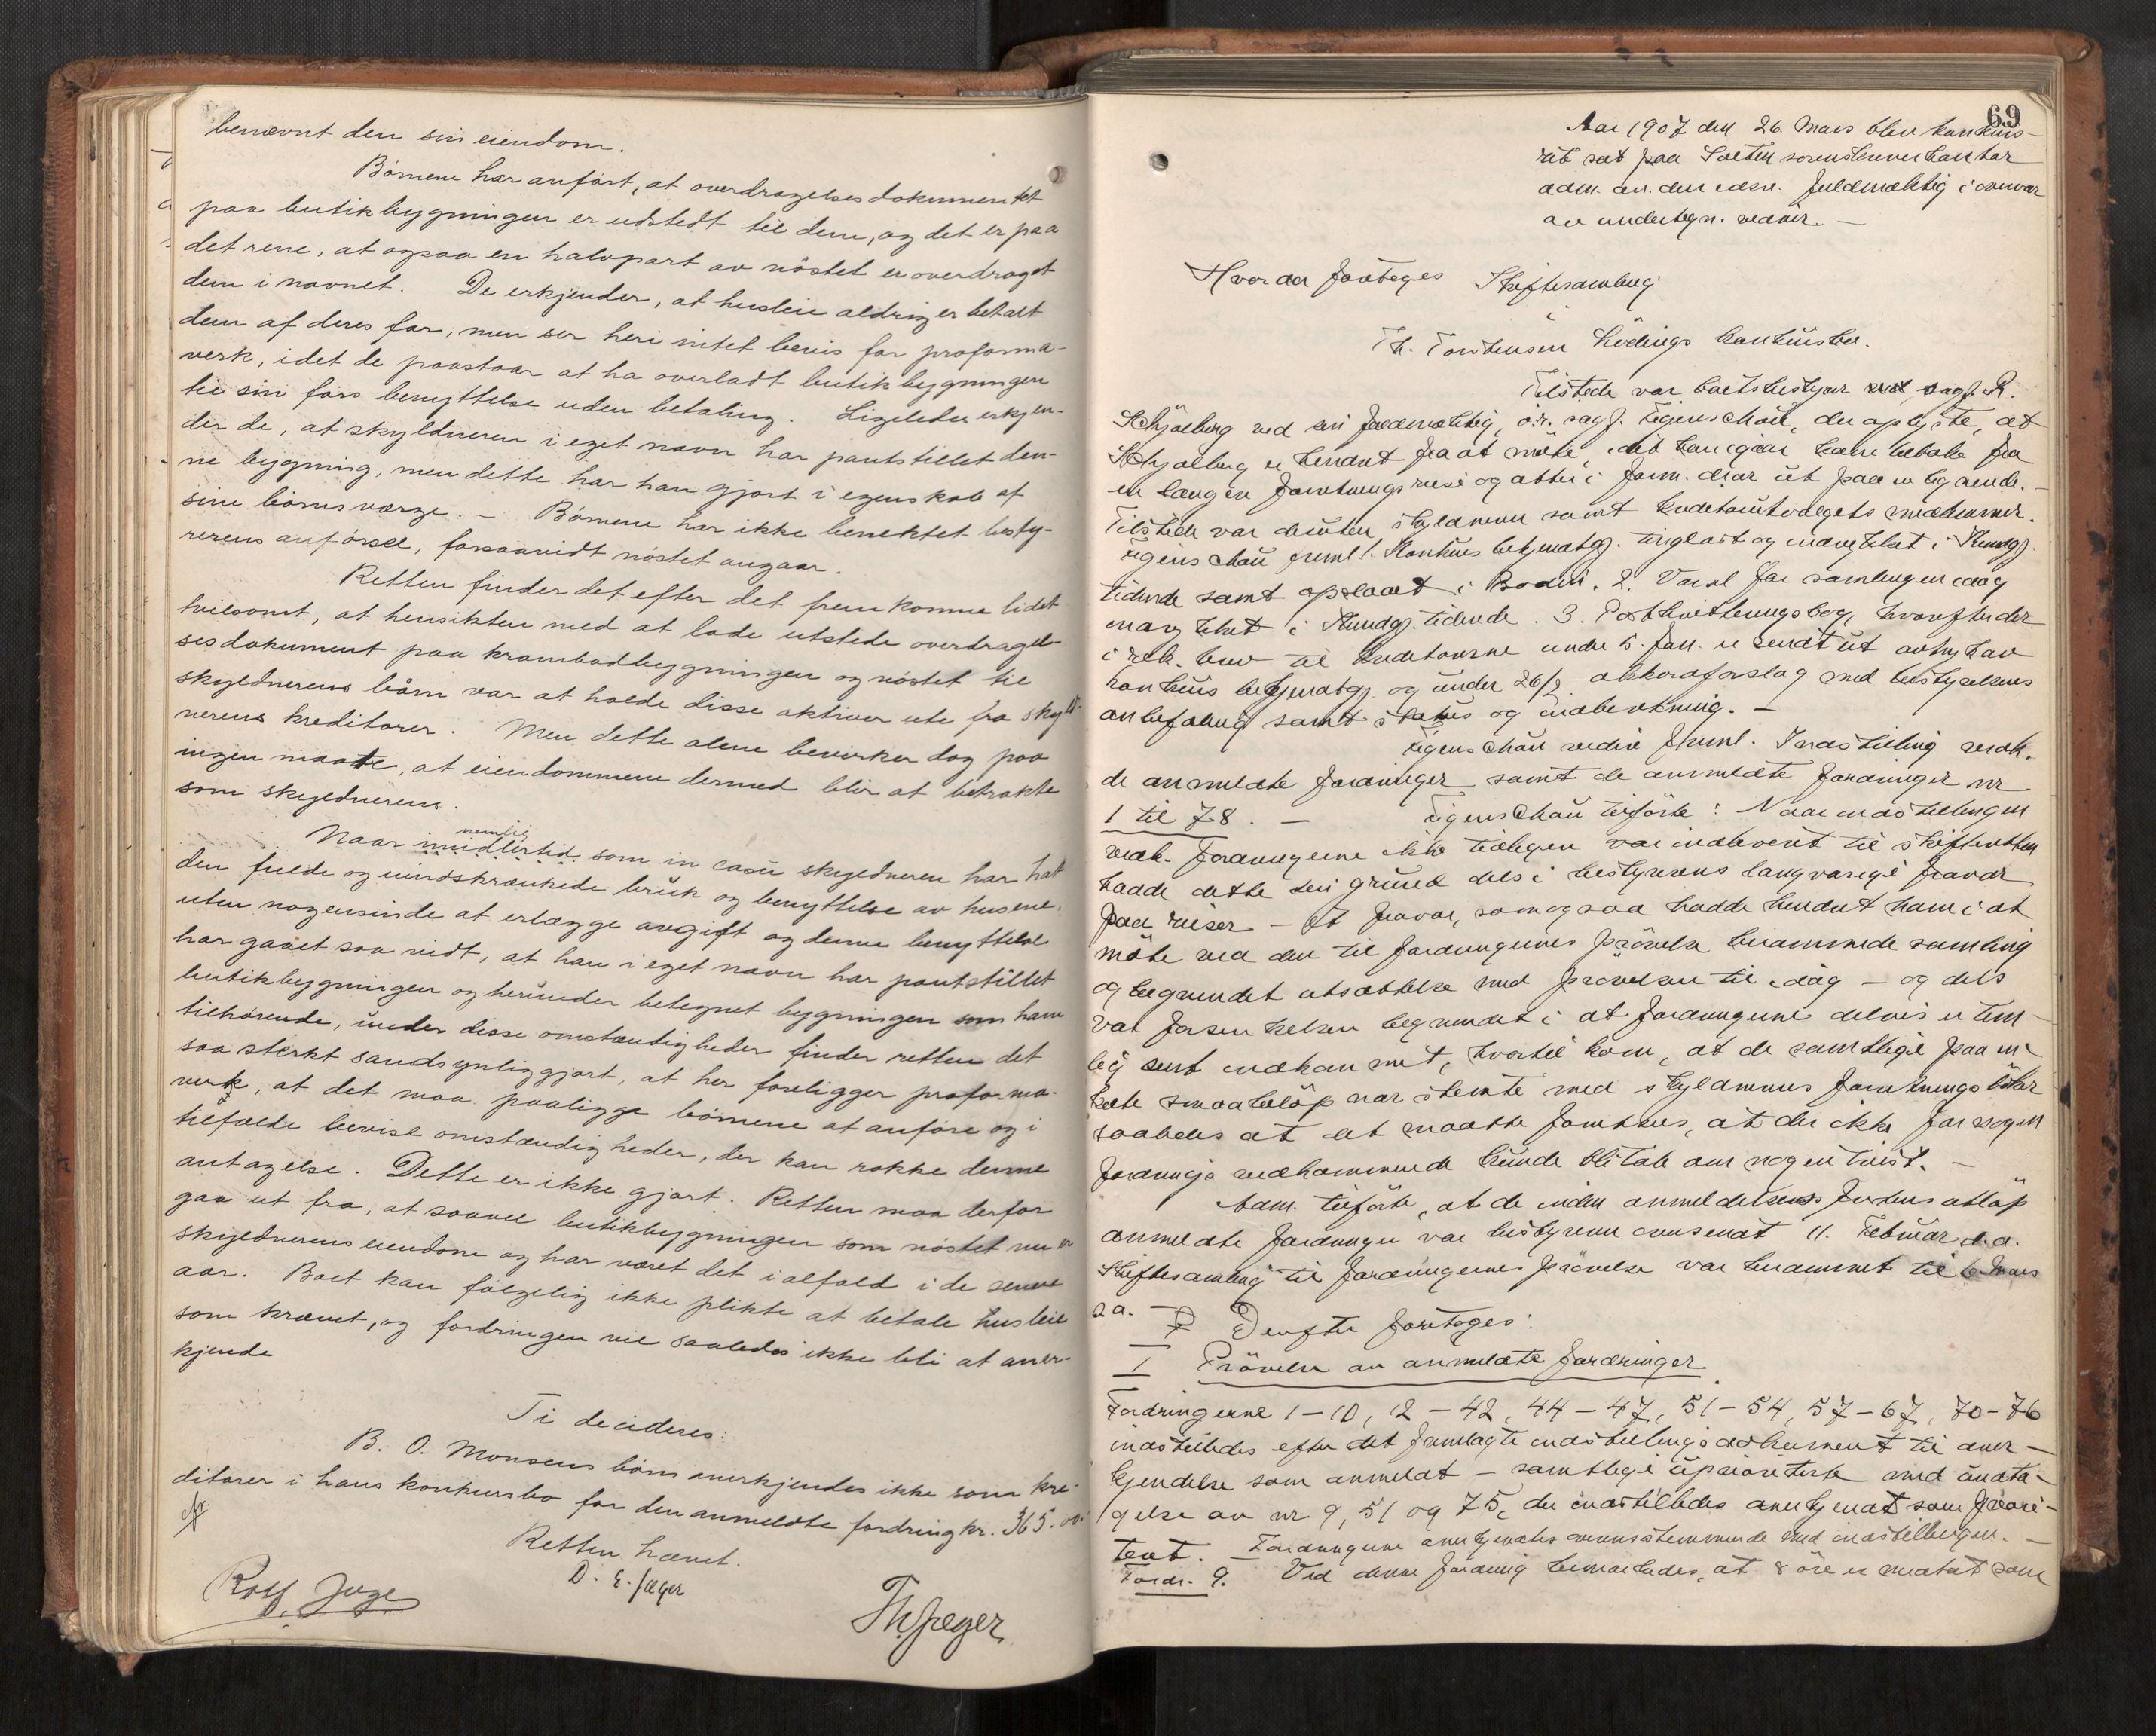 benævnt den sin eiendom.
Börnene har anfört, at overdragelsesdokumentet
paa butikbygningen er udstedt til dem, og det er paa
det rene, at ogsaa en halvpart av nöstet er overdraget
dem i navnet. De erkjender, at husleie aldrig er betalt
dem af deres far, men ser heri intet bevis for proforma-
verk, idet de paastaar at ha overladt butikbygningen
til sin fars benyttelse uden betaling. Ligeledes erkjen-
der de, at skyldneren i eget navn har pantstillet den-
ne bygning, men dette har han gjort i egenskab af
sine börns værge. - Börnene har ikke benektet besty-
rerens anförsel, forsaavidt nöstet angaar.
Retten finder det efter det fremkomne lidet
tvilsomt, at hensikten med at lade utstede overdragel-
sesdokument paa krambodbygningen og nöstet til
skyldnerens börn var at holde disse aktiver ute fra skyld-
nerens kreditorer. Men dette alene bevirker dog paa
ingen maate, at eiendommene dermed blir at betrakte
som skyldnerens.
nemlig
Naar imidlertid som in casu skyldneren har hat
den fulde og uindskrænkede brük og benyttelse av husene,
uten nogensinde at erlægge avgift og denne benyttelse
har gaaet saa vidt, at han i eget navn har pantstillet
butikbygningen og heründer betegnet bygningen som ham
tilhörende, ünder disse omstændigheder finder retten det
saa sterkt sandsynliggjort, at her foreligger proforma-
verk, at det maa paaligge börnene at anföre og i
tilfælde bevise omstændigheder, der kan rokke denne
antagelse. Dette er ikke gjort. Retten maa derfor
gaa ut fra, at saavel butikbygningen som nöstet nu er
skyldnerens eiendom og har været det ialfald i de senere
aar. Boet kan fölgelig ikke plikte at betale husleie
som krævet, og fordringen vil saaledes ikke bli at aner-
kjende
Ti decideres:
B. O. Monsens börn anerkjendes ikke som kre-
ditorer i hans konkursbo for den anmeldte fordring kr. 365.00.
Retten hævet.
D. E. Jæger
Rolf Juge
Th. Jæger
69
Aar 1907 den 26. Mars blev konkurs-
ret sat paa Salten sorenskriverkontor
adm. av den edsv. fuldmægtig i overvær
av undertegn. vidner. -
Hvorda foretoges Skiftesamling
i
Th. Torstensen Kødings konkursbo.
Tilstede var boets bestyrer sagf. R.
Schjølberg ved sin fuldmægtig, o.r. sagf. Eigenschau, der oplyste, at
Schjølberg er hindret fra at møte, idet han igaar kom tilbake fra
en længere forretningsreise og atter i form. drar ut paa en lignende. -
Tilstede var desuten skyldneren samt kreditorutvalgets medlemmer.
Eigenschau freml. 1. Konkursbekjendtgj. tinglæst og indrykket i Kundgj.
tidende samt opslaaet i Bodin. 2. Varsel for samlingen idag
indrykket i Kundgj. tidende. 3. Postkvitteringsbog, hvorefter der
i rek. brev til kreditorerne under 5. Jan. er sendt ut avtryk av
konkursbekjendtgj. og under 26/2 akkordforslag med bestyrelsens
anbefaling samt status og indberetning. -
Eigenschau videre freml. Indstilling vedk.
de anmeldte fordringer samt de anmeldte fordringer nr
1 til 78. - Eigenschau tilførte: Naar indstillingen
vedk. fordringerne ikke tidligere var indlevert til skifteretten
hadde dette sin grund dels i bestyrerens langvarige fravær
paa reiser - et fravær, som ogsaa hadde hindret ham i at
møte ved den til fordringernes prøvelse berammede samling
og begrundet utsættelse med prøvelsen til idag - og dels
var forsinkelsen begrundet i at fordringerne delvis er tem-
lig sent indkommet, hvortil kom, at de samtlige paa en-
kelte smaabeløp nær stemte med skyldnerens forretningsbøker
saaledes at det maatte forutsees, at der ikke for nogen
fordrings vedkommende kunde bli tale om nogen tvist. -
Adm. tilførte, at de inden anmeldelsens fristens utløp
anmeldte fordringer var bestyreren oversendt 11. Februar d.a.
Skiftesamling til fordringernes prøvelse var berammet til 6 Mars
d.a. -
Derefter foretoges:
I Prøvelse av anmeldte fordringer.
Fordringerne 1-10, 12-42, 44-47, 51-54, 57-67, 70-76
indstilledes efter det fremlagte indstillingsdokument til aner-
kjendelse som anmeldt - samtlige uprioriterte med undta-
gelse av nr 9, 51 og 75, der indstilledes anerkjendt som priori-
tert. - Fordringerne anerkjendtes overensstemmende med indstillingen. -
Fordr. 9. Ved denne fordring bemærkedes, at 8 øre er medtat som